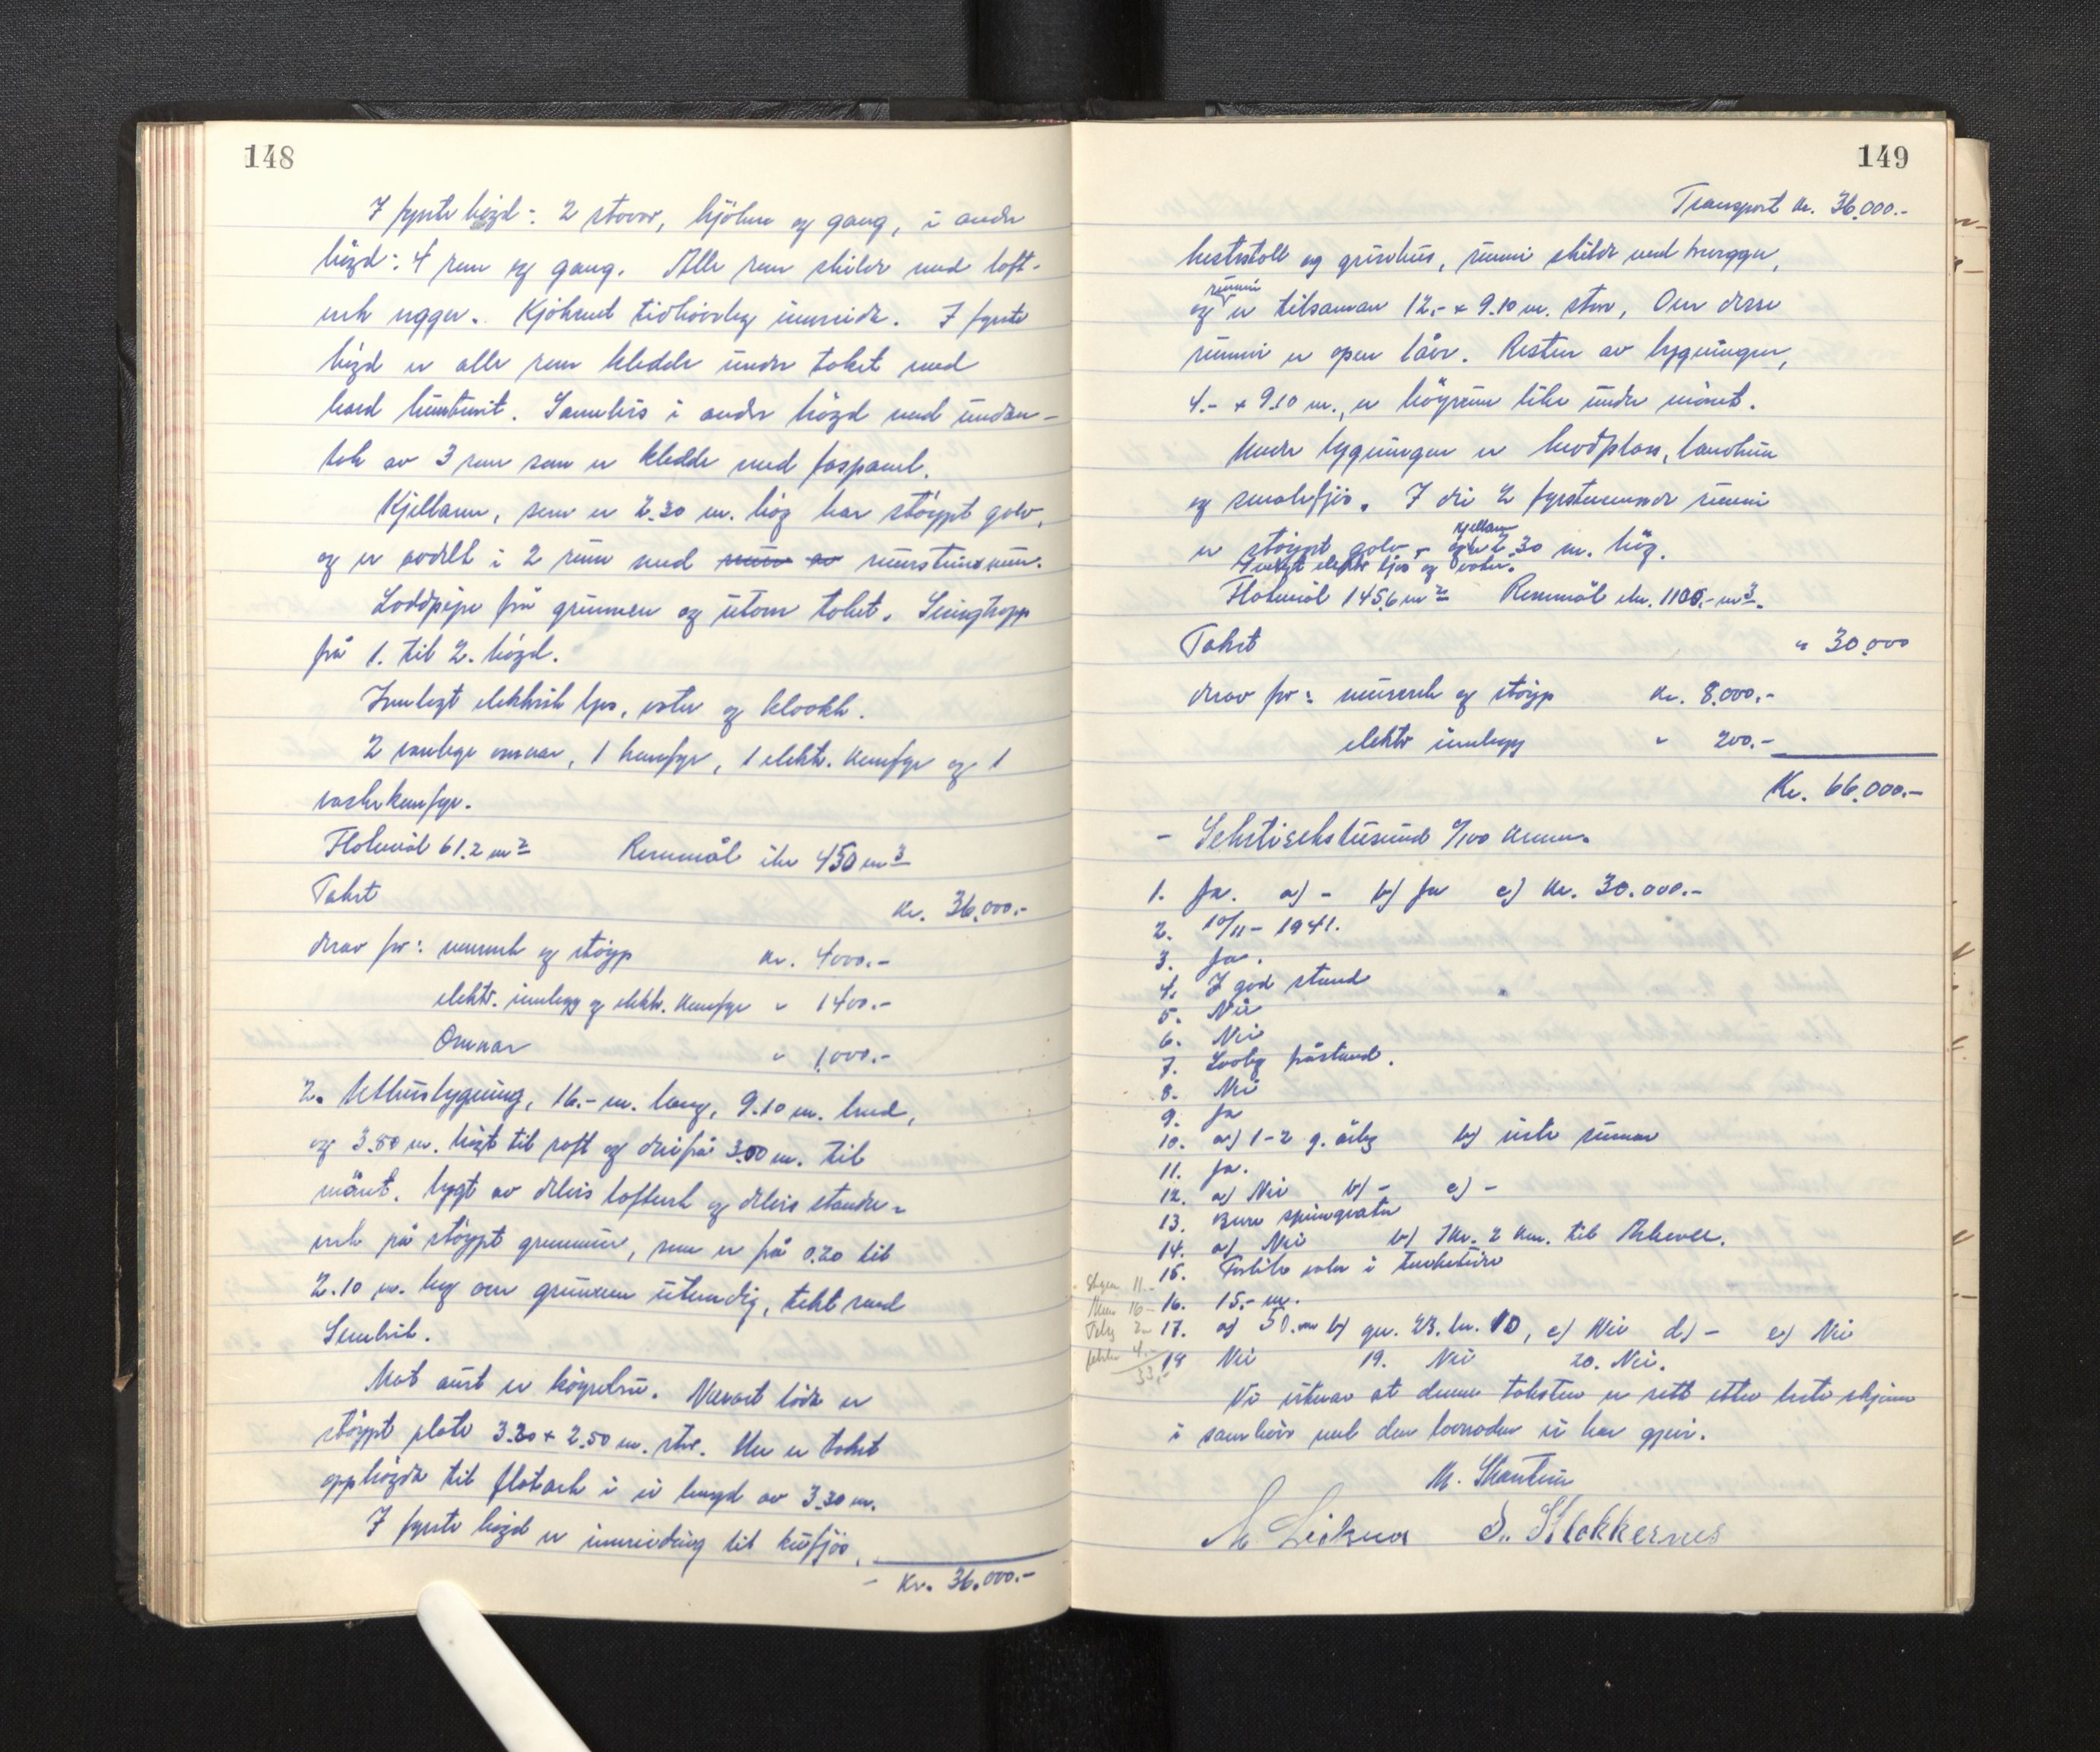 148
I fyrste högd: 2 stovor, kjöken og gang, i andre
högd: 4 rom og gang. Alle rom skilde med loft-
verk vegger. Kjökenet tidhöveleg innreidt. I fyrste
högd er alle rom kledde under taket med
hard huntonit. Samleis i andre högd med undan-
tak av 3 rom som er kledde med faspanel.
Kjellaren, som er 2.30 m. høg har støypt golv,
og er avdelt i 2 rum med murstensmur.
Loddpipe frå grunnen og utom taket. Svingtropp
frå 1. til 2. högd.
Innlegt elektrisk ljos, vatn og kloakk.
2 vanlege omnar, 1 komfyr, 1 elektr. komfyr og 1
vaskekomfyr.
Flatemål 61.2 m2 Rommål ikr 450 m3
Takst kr. 36.000.-
Derav for: murverk og støyp kr. 4000.-
elektr. innlegg og elektr. komfyr " 1400.-
Omnar " 1.000.-
2. Uthusbygning, 16.- m. lang, 9.10 m. breid,
og 3.80 m. högt til raft og derifrå 3.00 m. til
mönet, bygt av delvis loftverk og delvis stender-
verk på støypt grunnmur, som er frå 0.20 til
2.10 m. høg over grunnen utvendig, tekt med
Mot aust er köyrebru. Nærast löda er
støypt plate 3.30 x 2.50 m. stor. Her er taket
opphögda til flatark i ei lengd av 3.30 m.
I fyrste högd er innreiding til kufjös,
- Kr. 36.000.-
149
Transport kr. 36.000.-
heststall og grisehus, rummi skilde med murvegger,
rummi
og er tilsaman 12.- x 9.10 m. stor, Over desse
rummi er open låve. Resten av bygningen,
4.- x 9.10 m., er höyrum like under mönet.
Under bygningen er hevdplass, landkum
og smalefjös. I dei 2 fyrstenemnde rummi
kjellaren
er støypt golv, 2.30 m. høg.
Innlagt elektr ljos og vatn.
Flatemål 145,6 m2 Rommål ikr. 1100,- m3.
Takst " 30.000
Derav for: murverk og støyp kr. 8.000.-
elektr innlegg " 200.-
Kr. 66.000.-
- Sekstisekstusund 0/100 kroner.
1. Ja. a) - b) Ja c) kr. 30.000.-
2. 10/11 - 1941.
3. Ja.
4. I god stand
5. Nei
6. Nei
7. Lovleg tilstand.
8. Nei
9. Ja
10. a) 1-2 g. årleg b) uste rumar
11. Ja.
12. a) Nei b) - c) -
13. Bere springvatn
14. a) Nei b) Ikr. 2 km. til
15.
16. 15.- m.
17. a) 50. m b) gr. 23. br. 10, c) Nei d) - e) Nei
18 Nei 19. Nei 20. Nei.
Vi vitnar at denne taksten er sett etter beste skjönn
i samhöve med den lovnaden vi har gjeve.